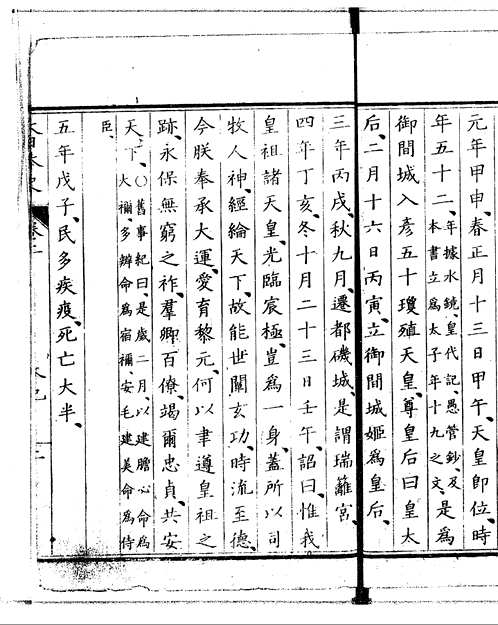 元年甲申、春正月十三日甲午、天皇即位、時
年五十二、年據水鏡、皇代記、愚管鈔、及
本書立爲太子年十九之文、是爲
御間城入彥五十瓊殖天皇、尊皇后曰皇太
后、二月十六日丙寅、立御間城姬爲皇后、
三年丙戌、秋九月、遷都磯城、是謂瑞籬宮、
四年丁亥、冬十月二十三日壬午、詔曰、惟我
皇祖諸天皇、光臨宸極、豈爲一身、蓋所以司
牧人神、經綸天下、故能世闡玄功、時流至德、
今朕奉承大運、愛育黎元、何以聿遵皇祖之
跡、永保無窮之祚、羣卿百僚、竭爾忠貞、共安
天下、○舊事紀曰、是歲二月、以建膽心命爲
大禰、多辨命爲宿禰、安毛建美命爲侍
臣、
五年戊子、民多疾疫、死亡大半、